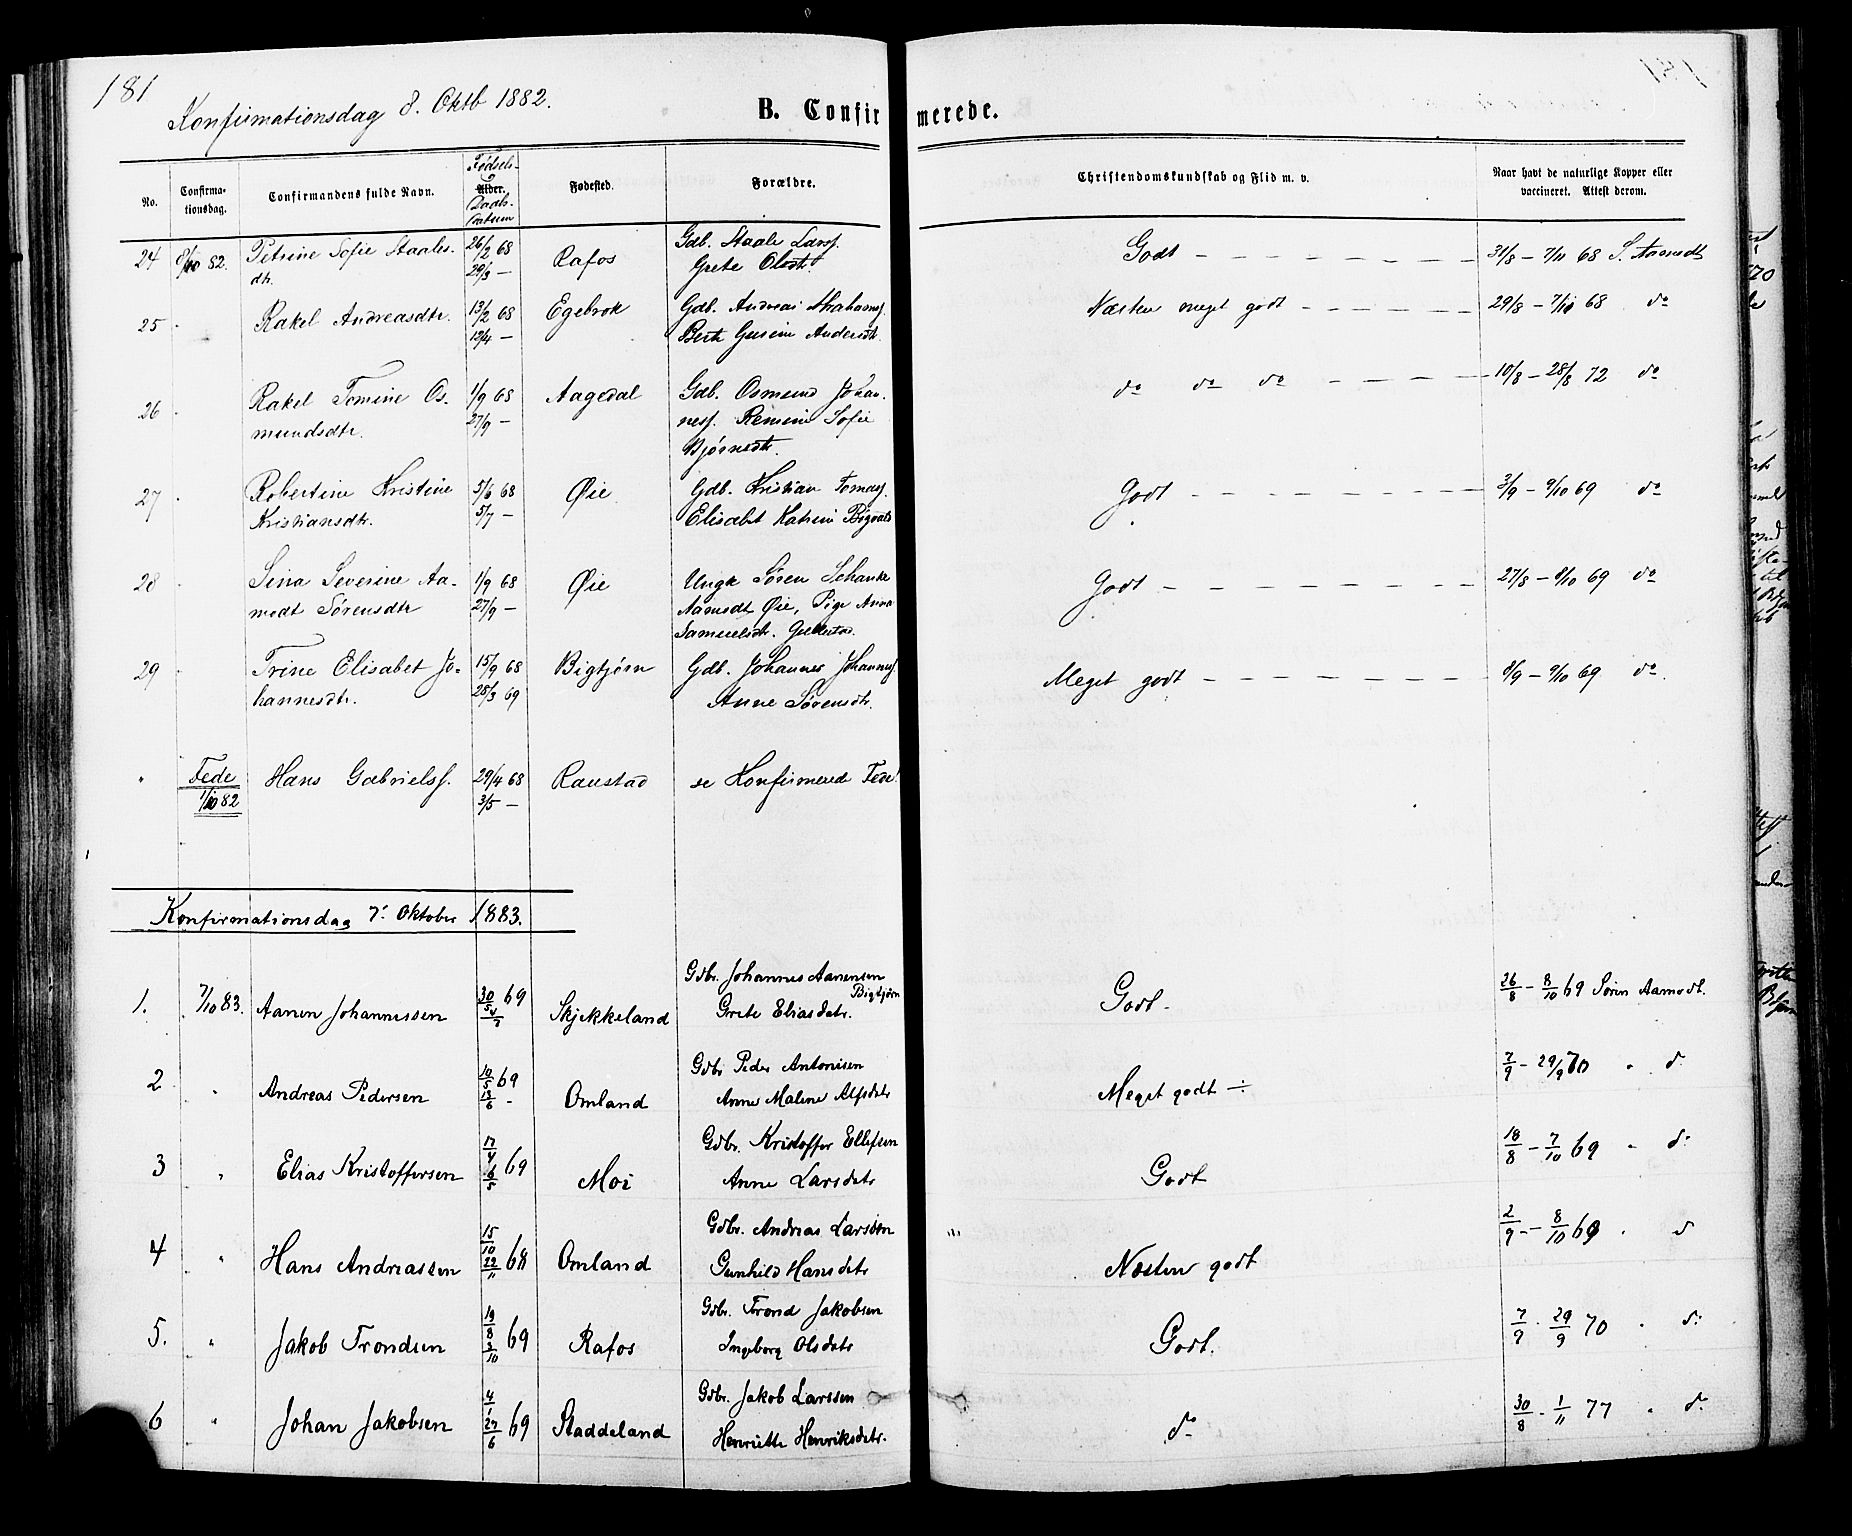 181
Konfirmationsdag 8. Oktb 1882.
B. Confirmerede.
No.
Confirma-
tionsdag.
Confirmandens fulde Navn.
Fødsels-
Alder.
Daabs-
datum
Fødested.
Forældre.
Christendomskundskab og Flid m. v.
Naar havt de naturlige Kopper eller
vaccineret. Attest derom.
24 8/10 82. Petrine Sofie Staales-
dtr. 26/2 68 29/3 — Rafos Gdb. Staale Larsf.
Grete Olsdtr. Godt — 31/8 – 7/11 68 S. Aamodt
25 Rakel Andreasdtr. 13/2 68 12/4 — Egebrok Gdb. Andreas
Berte Andersdtr. Næsten meget godt — 29/8 – 7/10 68 do
26 Rakel Tomine Os-
mundsdtr. 1/9 68 27/9 — Aagedal Gdb. Osmund Johan-
nesf. Remine Sofie
Bjørnsdtr. do do do — 10/8 – 28/8 72 do
27 Robertine Kristine
Kristiansdtr. 5/6 68 5/7 — Øie Gdb. Kristian Tomasf.
Elisabet Katrine Godt — 3/9 – 9/10 69 do
28 Sina Severine Aa-
modt Sørensdtr 1/9 68 27/9 — Øie Ungk Søren Schanke
Aamodt Øie, Pige Anna
Samuelsdtr. Godt — 27/8 – 8/10 69 do
29 Trine Elisabet Jo-
hannesdtr. 15/9 68 28/3 69 Bigtjørn Gdb. Johannes Johannesf
Anne Sørensdtr. Meget godt — 8/9 – 9/10 69 do.
" Fede
1/10 82 Hans Gabrielsf. 29/4 68 3/5 — Raustad se Konfirmerede Fede!
Konfirmationsdag 7. Oktober 1883.
1. 7/10 83. Aanen Johannessen 30/5 69 4/7 Skjekkeland Gdbr. Johannes Aanensen
Bigtjørn
Grete Eliasdatr. Godt. 26/8 – 8/10 69 Søren Aamodt.
2 " Andreas Pedersen 10/5 69 13/6 - Omland Gdbr Peder Antonisen
Anne Malene Alfsdatr Meget godt ÷ 7/9 - 29/9 70 " do
3 " Elias Kristoffersen 17/4 6/5 69 Moi Gdbr. Kristoffer Ellefsen
Anne Larsdatr Godt 18/8 – 7/10 69 " do
4 " Hans Andreassen 15/10 22/11 68 Omland Gdbr. Andreas Larssen
Gunhild Hansdatr Næsten godt 2/9 – 8/10 69 " do
5. " Jakob Trondsen 19/8 3/10 69 Rafos Gdbr. Trond Jakobsen
Ingeborg Olsdatr Godt. 7/9 - 29/9 70 " do
6 " Johan Jakobsen 4/1 27/6 69 Staddeland Gdbr. Jakob Larssen
Henriette Henriksdatr. do 30/8 - 1/11 77 " do